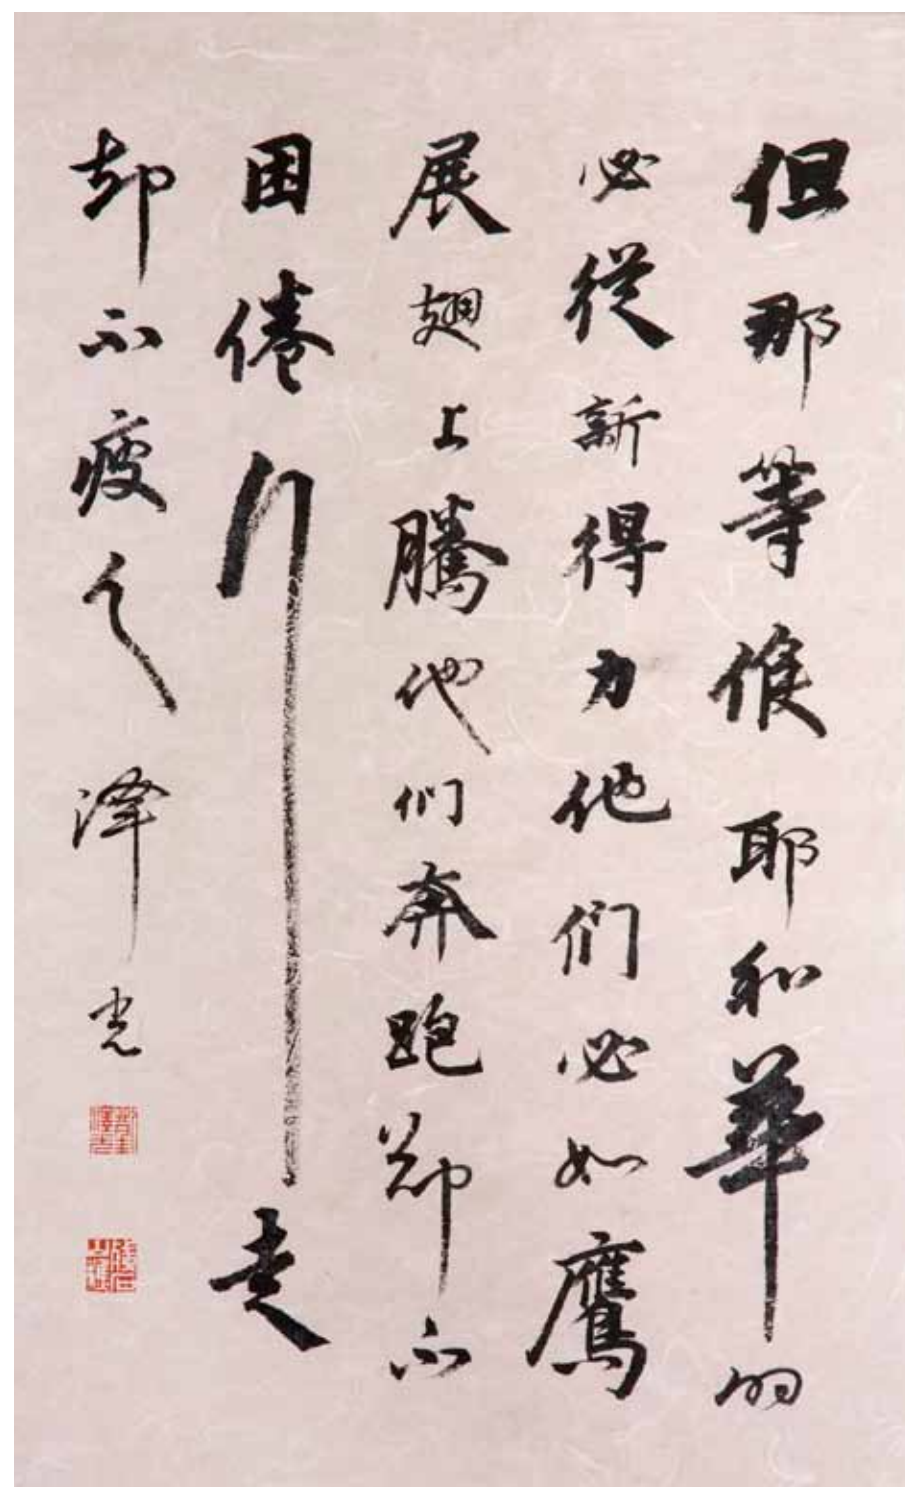 但那等候耶和華的
必從新得力他們必如鷹
展翅上騰他们奔跑卻不
困倦行走
却不疲乏澤光